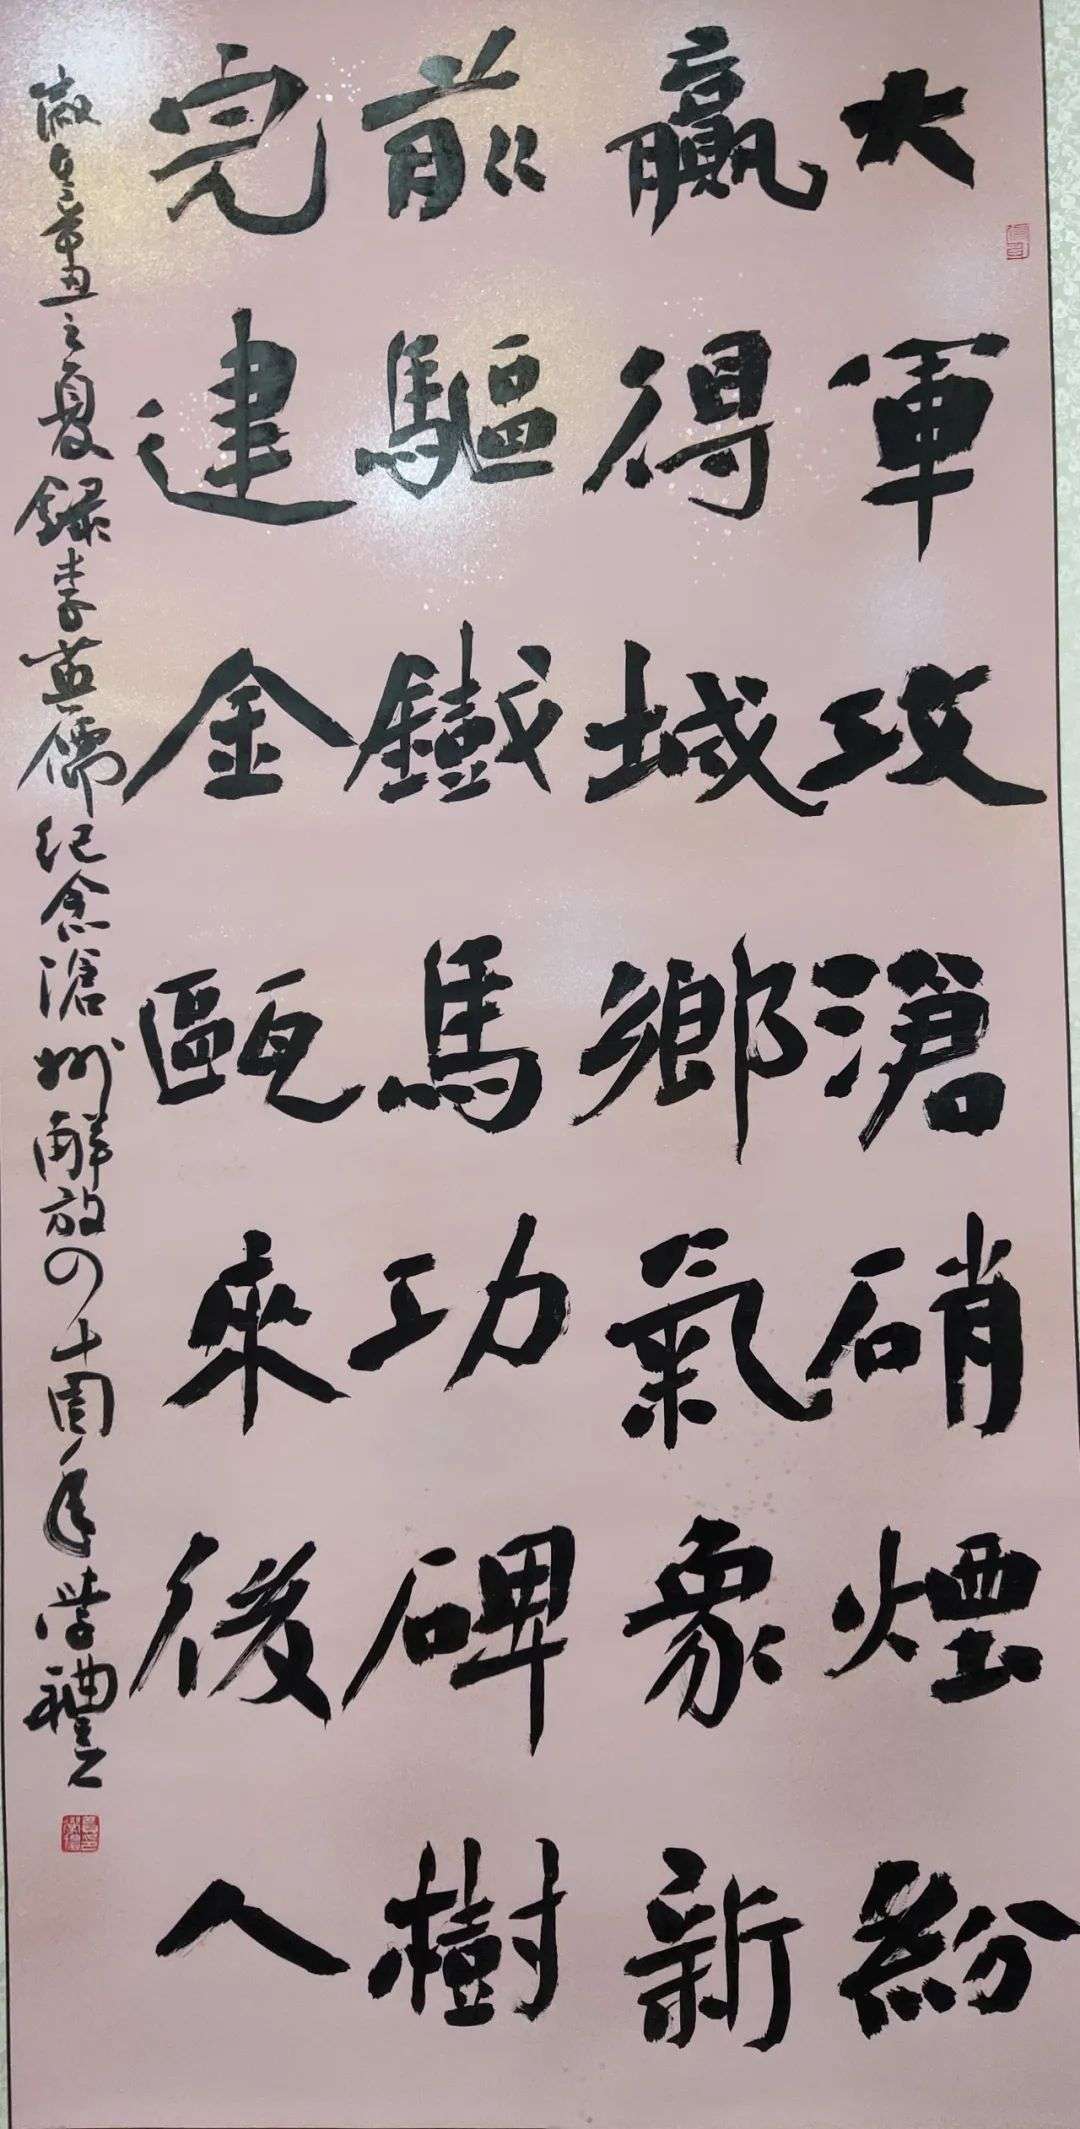 大軍攻滄硝煙紛
贏得城鄉氣象新
前驅鐵馬功碑樹
完建金甌來後人
歲在辛丑之夏錄李英儒紀念滄州解放四十周年學禮